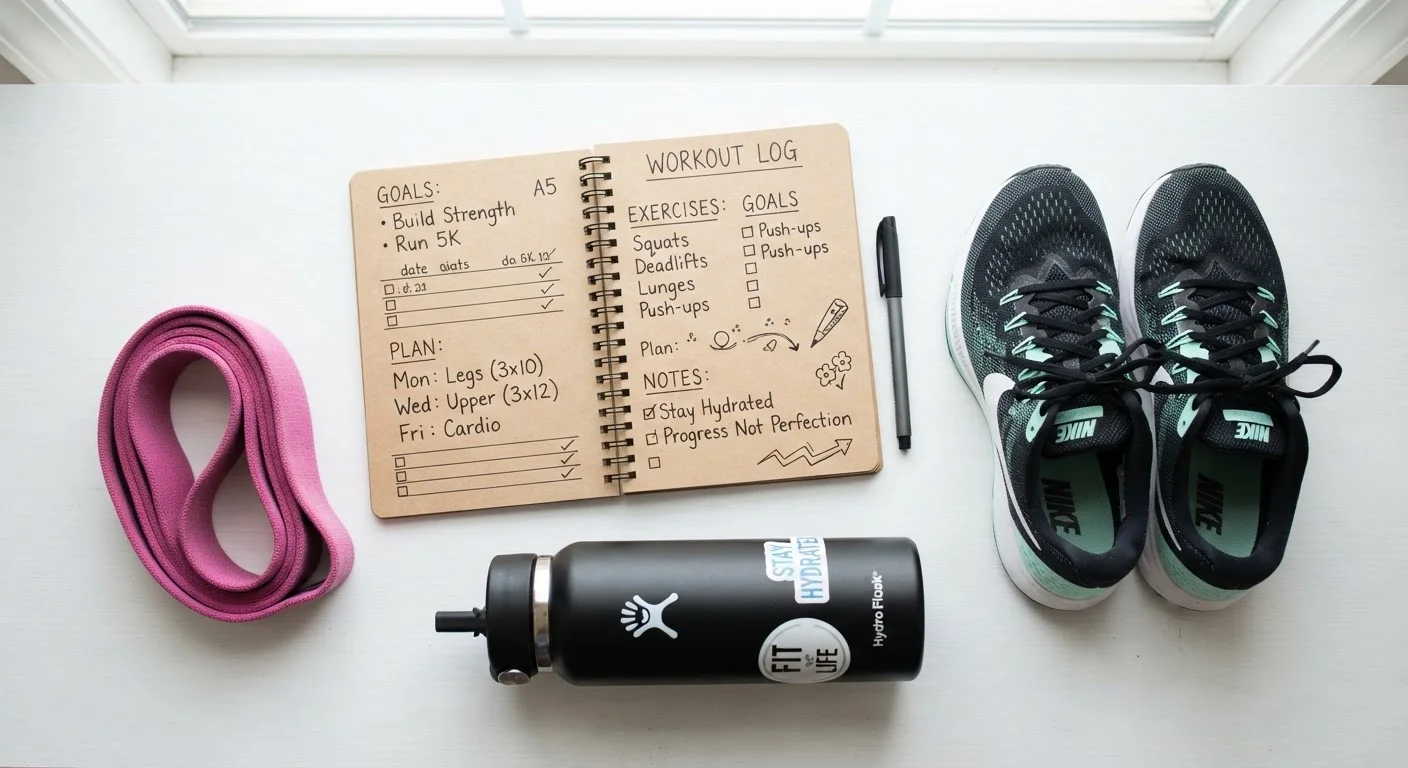 GOALS:
A5
• Build Strength
• Run 5K
date
PLAN:
Mon: Legs (3x10)
Wed: Upper (3x12)
Fri: Cardio
WORKOUT LOG
EXERCISES:
Squats
Deadlifts
Lunges
Push-ups
GOALS
Push-ups
Push-ups
Plan:
NOTES:
Stay Hydrated
Progress Not Perfection
STAY
HYDRATE
FIT
LIFE
Hydro Flask
NIKE
NIKE
NIKE
NIKE